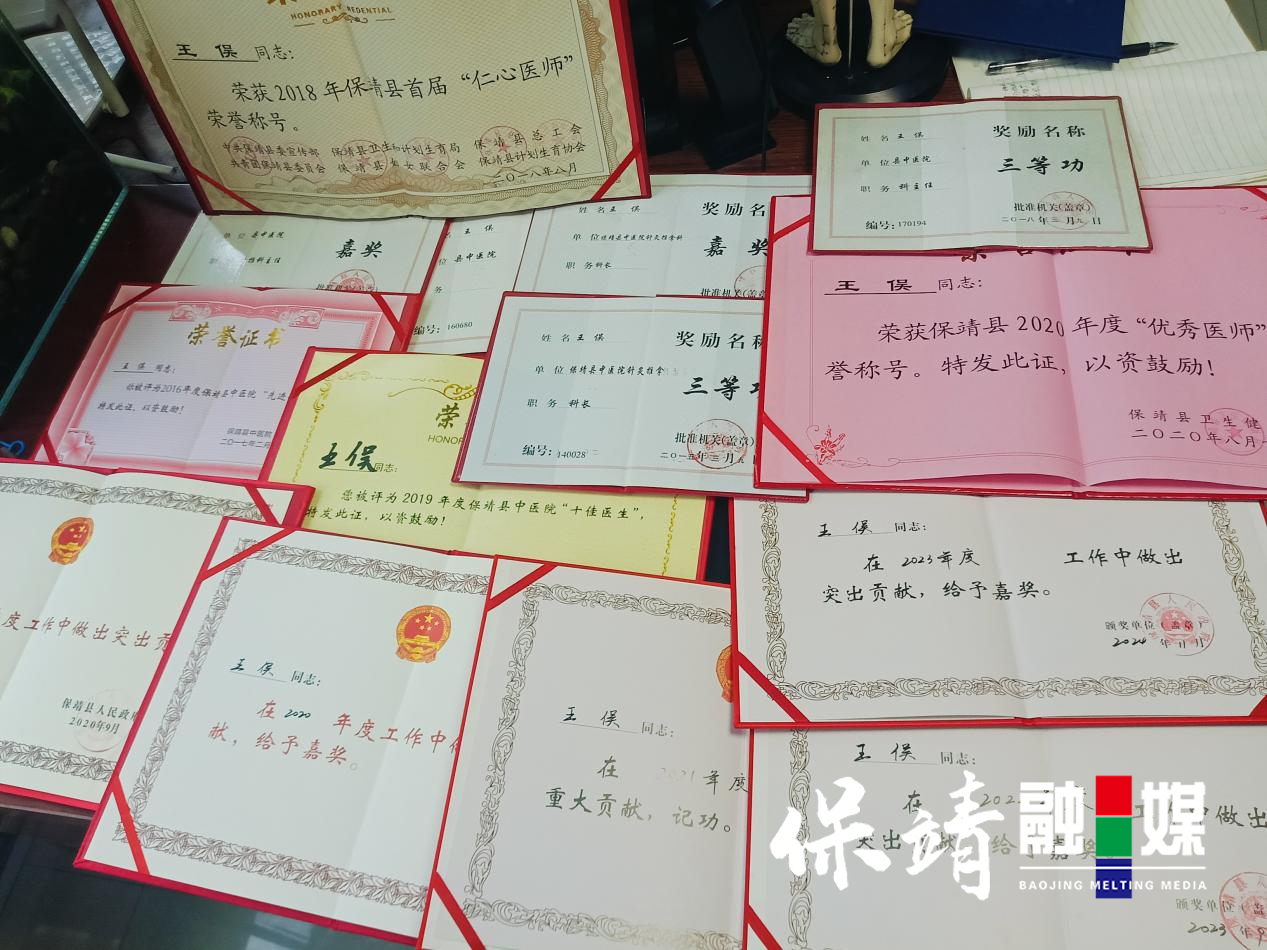 HONORARY CREDENTIAL
王俣 同志：
荣获2018年保靖县首届“仁心医师”
荣誉称号。
中共保靖县委宣传部 保靖县卫生和计划生育局 保靖县总工会
共青团保靖县委员会 保靖县妇女联合会 保靖县计划生育协会
二〇一八年八月
姓名 王俣
单位 县中医院
职务 科主任
编号：170194
奖励名称
三等功
批准机关(盖章)
二〇一八年三月 日
单位 县中医院
科主任
嘉奖
批准机关(盖
名 王俣
位 县中医院
务
编号：160680
姓名 王俣
单位 保靖县中医院针灸推拿科
职务 科长
奖励名
嘉奖
批准机关(盖
王俣 同志：
荣获保靖县2020年度“优秀医师”
誉称号。特发此证，以资鼓励！
保靖县卫生健
二〇二〇年八月
荣誉证书
王俣 同志：
你被评为2016年度保靖县中医院“先进
特发此证，以资鼓励！
保靖县中医院
二〇一七年二月
荣
HONOR
王俣 同志：
您被评为2019年度保靖县中医院“十佳医生”，
特发此证，以资鼓励！
姓名 王俣
单位 保靖县中医院针灸推拿
职务 科长
编号：140028
奖励名称
三等功
批准机关(盖章)
二〇一五年三月 日
王俣 同志：
在2023年度 工作中做出
突出贡献，给予嘉奖。
颁奖单位（盖章）
2024年 月
度工作中做出突出贡
保靖县人民政府
2020年9月
王俣 同志：
在2020 年度工作中做
献，给予嘉奖。
王俣 同志：
在 2021年度
重大贡献，记功。
王俣 同志：
在 202
工作中做出
突出贡献 给予嘉奖
颁奖单位（盖
2023年
保靖融媒
BAOJING MELTING MEDIA